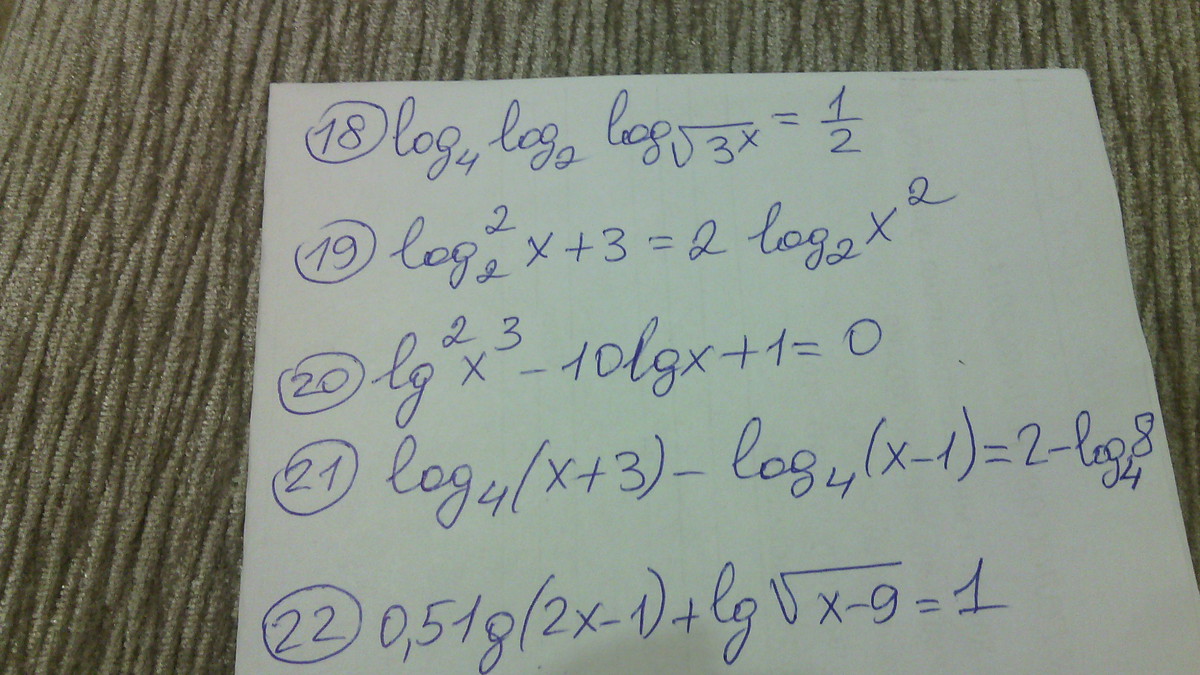 18 log₄ log₂ log√3x = 1/2
19 log₂² x + 3 = 2 log₂ x²
20 lg² x³ - 10lgx + 1 = 0
21 log₄(x+3) - log₄(x-1) = 2 - log₄8
22 0,5lg(2x-1) + lg √x-9 = 1